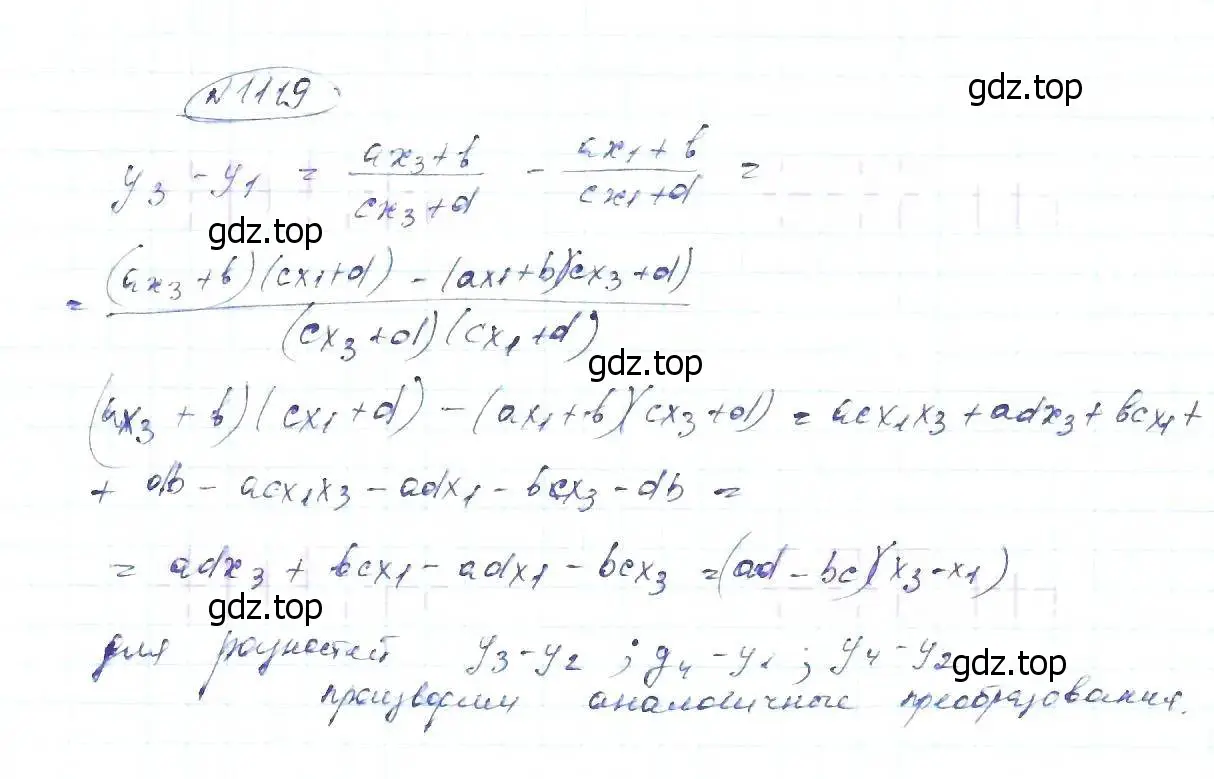 №1119
gdz.top
y₃ - y₁ = (ax₃+b)/(cx₃+d) - (ax₁+b)/(cx₁+d) =
gdz.top
= ((ax₃+b)(cx₁+d) - (ax₁+b)(cx₃+d))/((cx₃+d)(cx₁+d))
gdz.top
(ax₃+b)(cx₁+d) - (ax₁+b)(cx₃+d) = acx₁x₃ + adx₃ + bcx₁ +
+ db - acx₁x₃ - adx₁ - bcx₃ - db =
= adx₃ + bcx₁ - adx₁ - bcx₃ = (ad - bc)(x₃ - x₁)
gdz.top
для разностей y₃ - y₂ ; y₄ - y₁ ; y₄ - y₂
gdz.top
производим аналогичные преобразования.